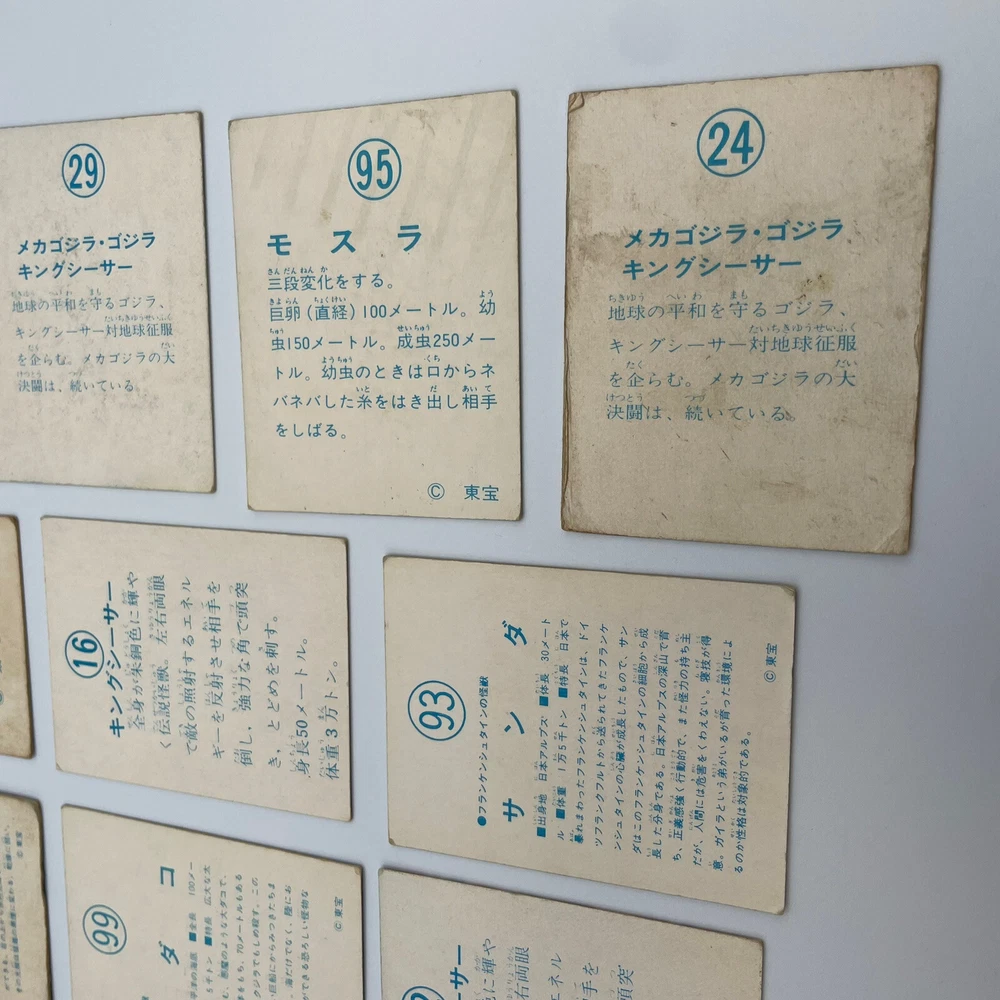 29
メカゴジラ・ゴジラ
キングシーサー
地球の平和を守るゴジラ、
キングシーサー対地球征服
を企らむ。メカゴジラの大
決闘は、続いている。
95
モスラ
三段変化をする。
巨卵(直経)100メートル。幼
虫150メートル。成虫250メー
トル。幼虫のときは口からネ
バネバした糸をはき出し相手
をしばる。
© 東宝
24
メカゴジラ・ゴジラ
キングシーサー
地球の平和を守るゴジラ、
キングシーサー対地球征服
を企らむ。メカゴジラの大
決闘は、続いている。
16
キングシーサー
全身が朱銅色に輝や
く伝説怪獣。左右両眼
で敵の照射するエネル
ギーを反射させ相手を
倒し、強力な角で頭突
き、とどめを刺す。
身長50メートル。
体重3万トン。
93
●フランケンシュタインの怪獣
サンダ
■出身地 日本アルプス ■体長 30メート
ル ■体重 1万5千トン ■特長 日本で
暴れまわったフランケンシュタインは、ドイ
ツフランクフルトから送られてきたフランケ
ンシュタインの心臓が成長したもので、サン
ダはこのフランケンシュタインの細胞から成
長した分身である。日本アルプスの深山で育
ち、正義感強く行動的で、また怪力の持ち主
だが、人間には危害をくわえない。寒技が得
意。ガイラという弟がいるが育った環境によ
るのか性格は対象的である。
© 東宝
99
ダコ
の海底 ■全長 100メー
5千トン ■特長 広大な大
む、悪魔のような大ダコで、
をもち、70メートルもある
クジラでもしめ殺す。この
巨船にからみつきたちま
。海だけでなく、陸にお
ができる恐ろしい怪物な
© 東宝
ーサー
色に輝や
右両眼
エネル
手を
頭突